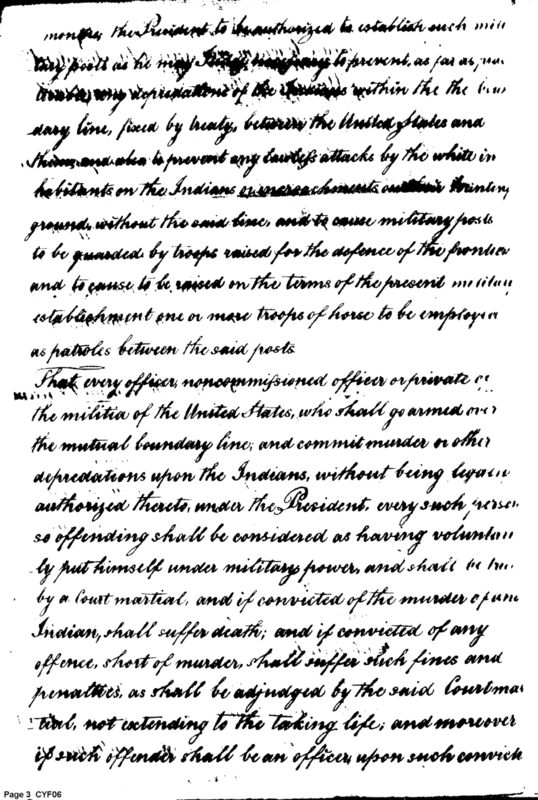 the President to be authorized to establish such
tary posts as he may to prevent, as far as
any depredations of the Indians within the the
dary line, fixed by treaty, between the United States and
them and also to prevent any lawless attacks by the white in
habitants on the Indians or encroachments on their hunting
ground, without the said line, and to cause military posts
to be guarded by troops raised for the defence of the frontier
and to cause to be raised on the terms of the present military
establishment one or more troops of horse to be employed
as patroles between the said posts
That every officer, noncommissioned officer or private of
the militia of the United States, who shall go armed over
the mutual boundary line, and commit murder or other
depredations upon the Indians, without being legally
authorized thereto, under the President, every such person
so offending shall be considered as having voluntari
ly put himself under military power, and shall be
by a Court martial, and if convicted of the murder of
Indian, shall suffer death; and if convicted of any
offence, short of murder, shall suffer such fines and
penalties, as shall be adjudged by the said Court mar
tial, not extending to the taking life; and moreover
if such offender shall be an officer, upon such convict
Page 3 CYF06